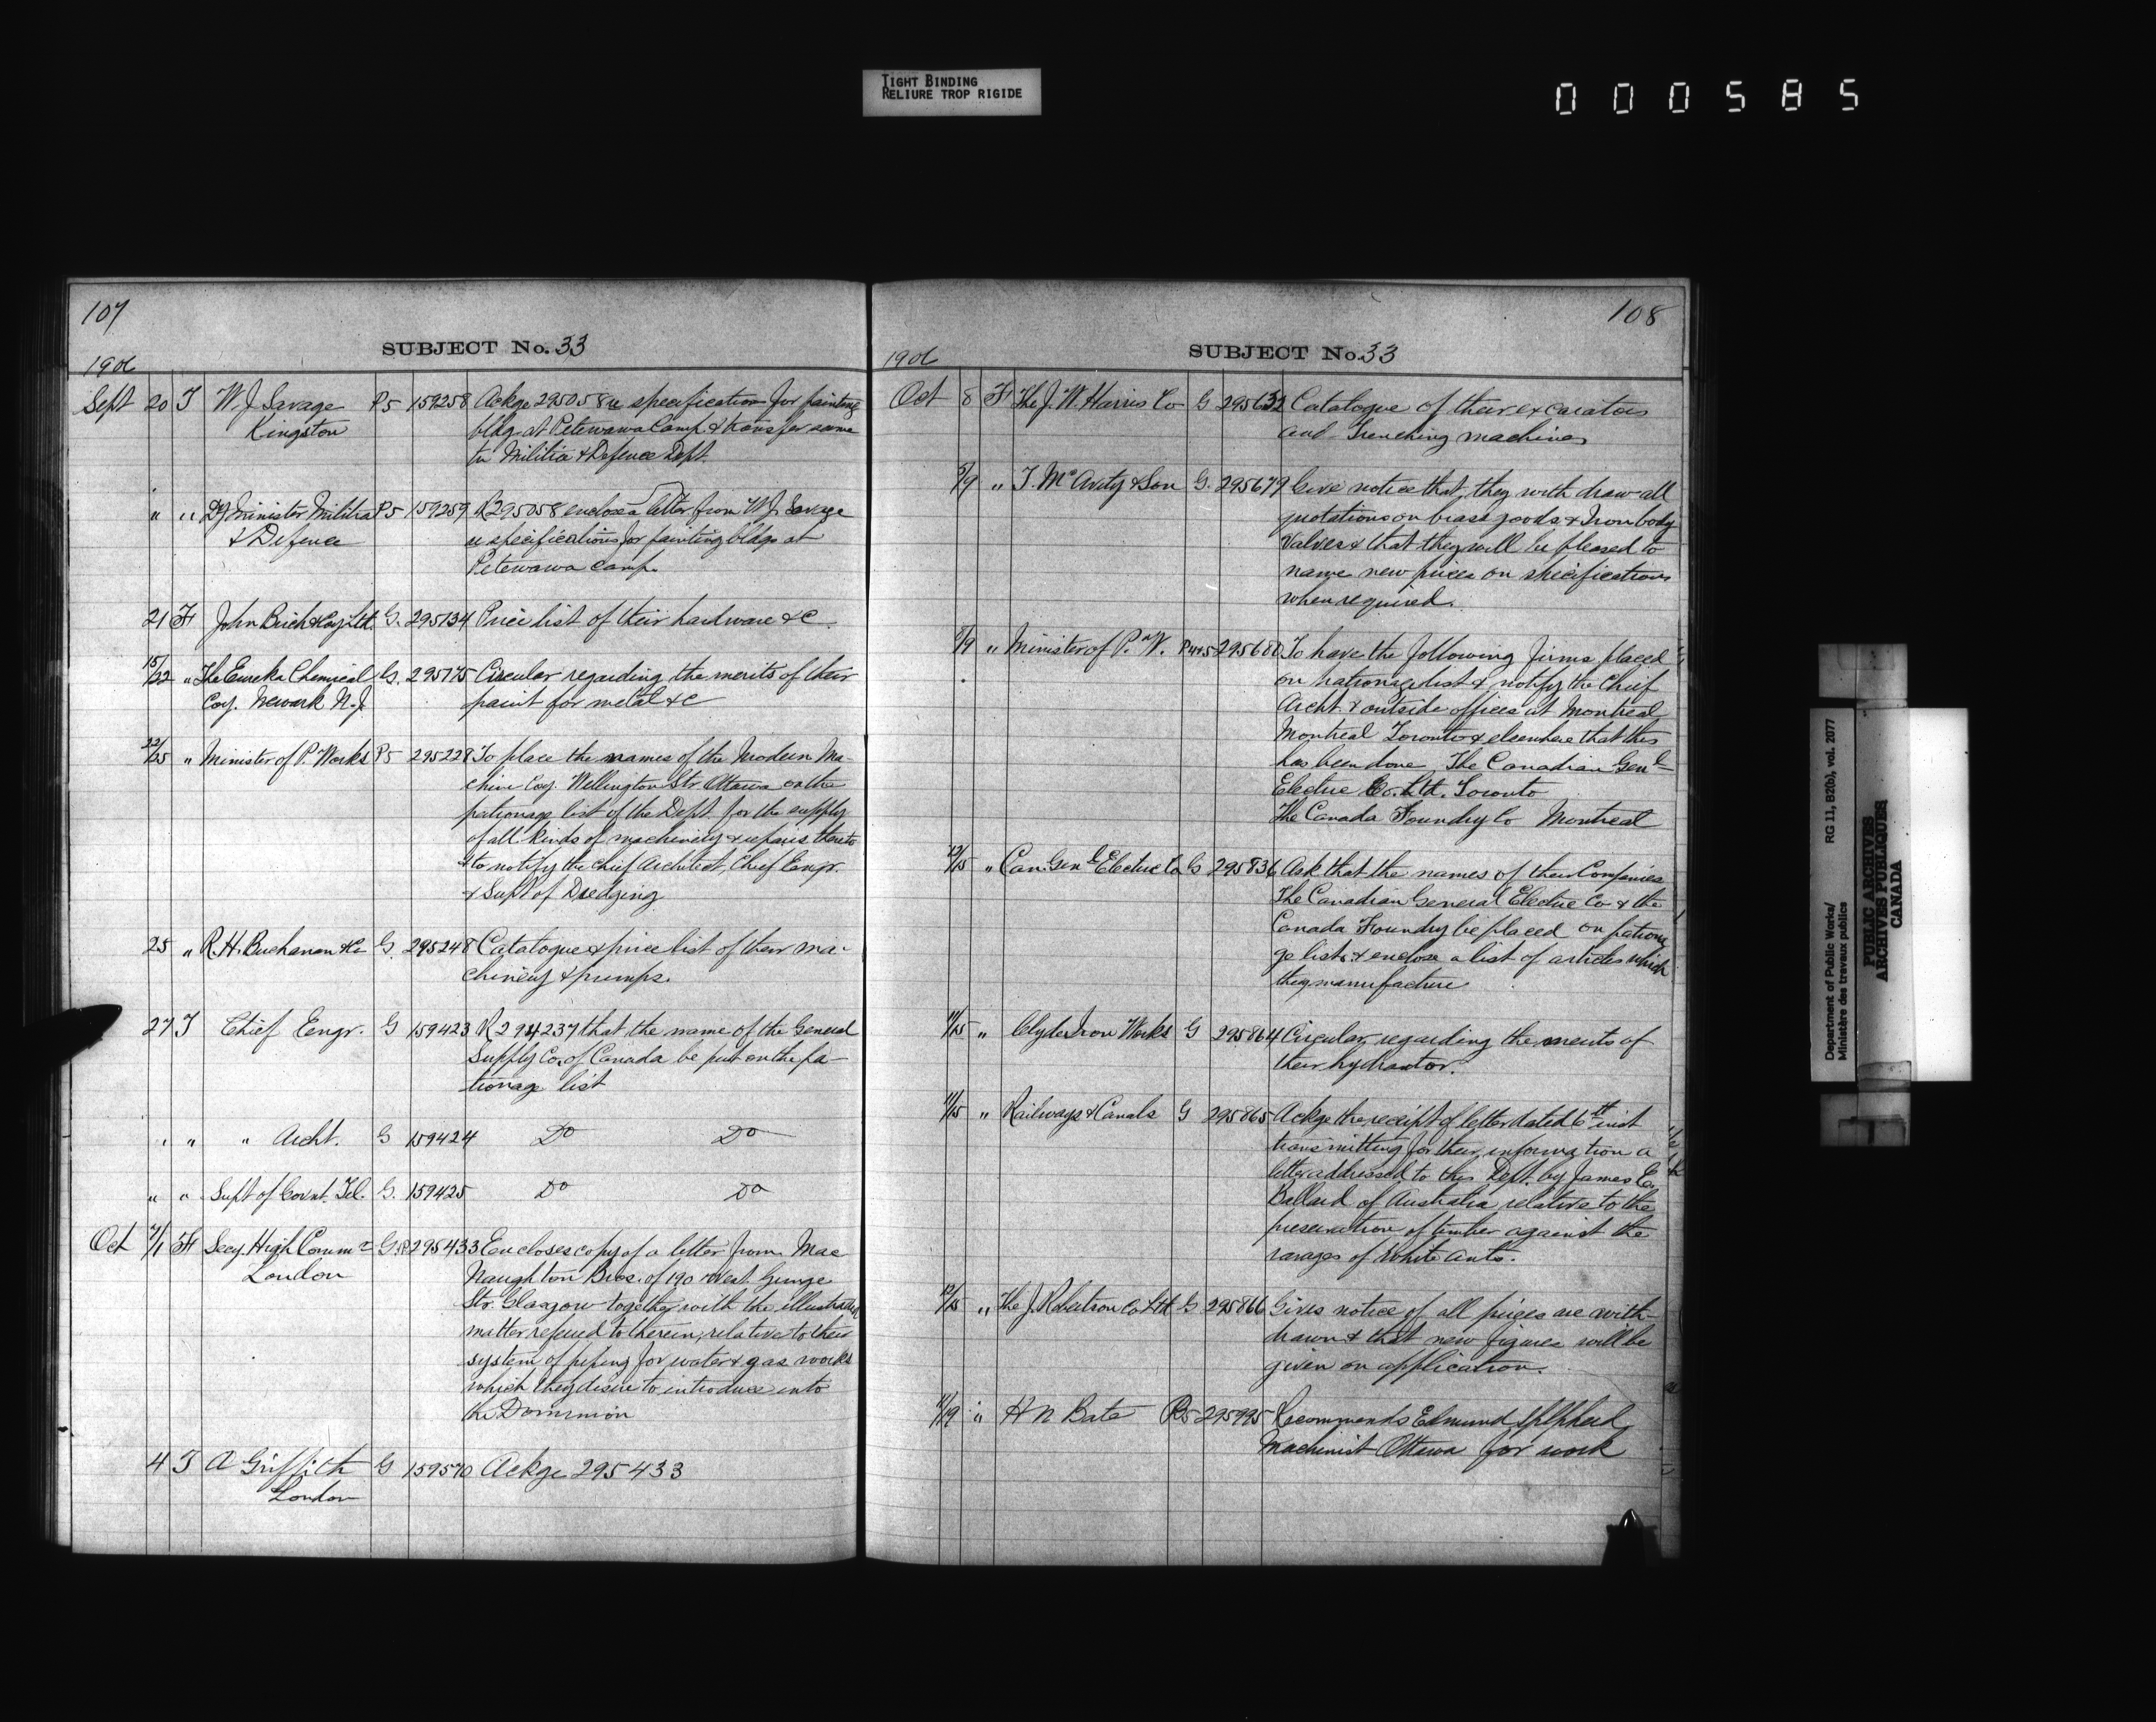 TIGHT BINDING
RELIURE TROP RIGIDE
000585
107
SUBJECT No. 33
1906
Sept 20 T W. J. Savage P5 159258 Ackge 295058 u specification for painting
Kingston bldg at Petewawa Camp & transfer same
to Militia & Defence Dept.
" " Dy Minister Militia P5 159259 R 295058 enclose a letter from W J Savage
& Defence u specifications for painting bldgs at
Petewawa Camp.
21 F John Birch & Coy Ltd. G. 295134 Price list of their hardware &c
15/22 " The Eureka Chemical G. 295175 Circular regarding the merits of their
Coy. Newark N.J. paint for metal &c
22/25 " Minister of P. Works P5 295228 To place the names of the Modern Ma-
chine Coy. Wellington Str Ottawa on the
patronage list of the Dept. for the supply
of all kinds of machinery & repairs thereto
& to notify the Chief Architect, Chief Engr.
& Supt of Dredging
25 " R. H. Buchanan & Co G. 295248 Catalogue & price list of their ma-
chinery & pumps.
27 T Chief Engr. G 159423 R 294237 that the name of the General
Supply Co. of Canada be put on the pa-
tronage list
" " " Archt. G 159424 Do Do
" " Supt of Govnt. Tel. G. 159425 Do Do
Oct 7/1 F Secy High Commr G.P. 295433 Encloses copy of a letter from Mac
London Naughton Bros. of 190 West George
Str. Glasgow together with the illustrated
matter referred to therein, relative to their
system of piping for water & gas works
which they desire to introduce into
the Dominion
4 T A Griffith G 159570 Ackge 295433
London
108
SUBJECT No. 33
1906
Oct 8 F The J. W. Harris Co G 295632 Catalogue of their excavators
and Trenching machines
5/9 " T. McAvity & Son G. 295679 Give notice that they with draw all
quotations on brass goods & Iron body
Valves & that they will be pleased to
name new prices on specifications
when required.
8/9 " Minister of P. W. 295680 To have the following firms placed
on patronage list & notify the Chief
Archt. & outside offices at Montreal
Montreal Toronto & elsewhere that this
has been done The Canadian Genl
Electric Co. Ltd. Toronto
The Canada Foundry Co Montreal
12/15 " Can. Genl Electric Co G 295836 Ask that the names of their Companies
The Canadian General Electric Co & the
Canada Foundry be placed on patrona
ge lists & enclose a list of articles which
they manufacture
11/15 " Clyde Iron Works G 295864 Circular, regarding the merits of
their hydrautor.
11/15 " Railways & Canals G 295865 Ackge the receipt of letter dated 6th inst
transmitting for their information a
letter addressed to this Dept. by James E.
Ballard of Australia relative to the
preservation of timber against the
ravages of White ants.
12/15 " The J. Robertson Co Ltd G 295866 Gives notice of all prices are with-
drawn & that new figures will be
given on application.
11/19 " H N Bate P5 295995 Recommends Edmund Shepherd
Machinist Ottawa for work
Department of Public Works/
Ministère des travaux publics
RG 11, B2(b), vol. 2077
PUBLIC ARCHIVES
ARCHIVES PUBLIQUES
CANADA